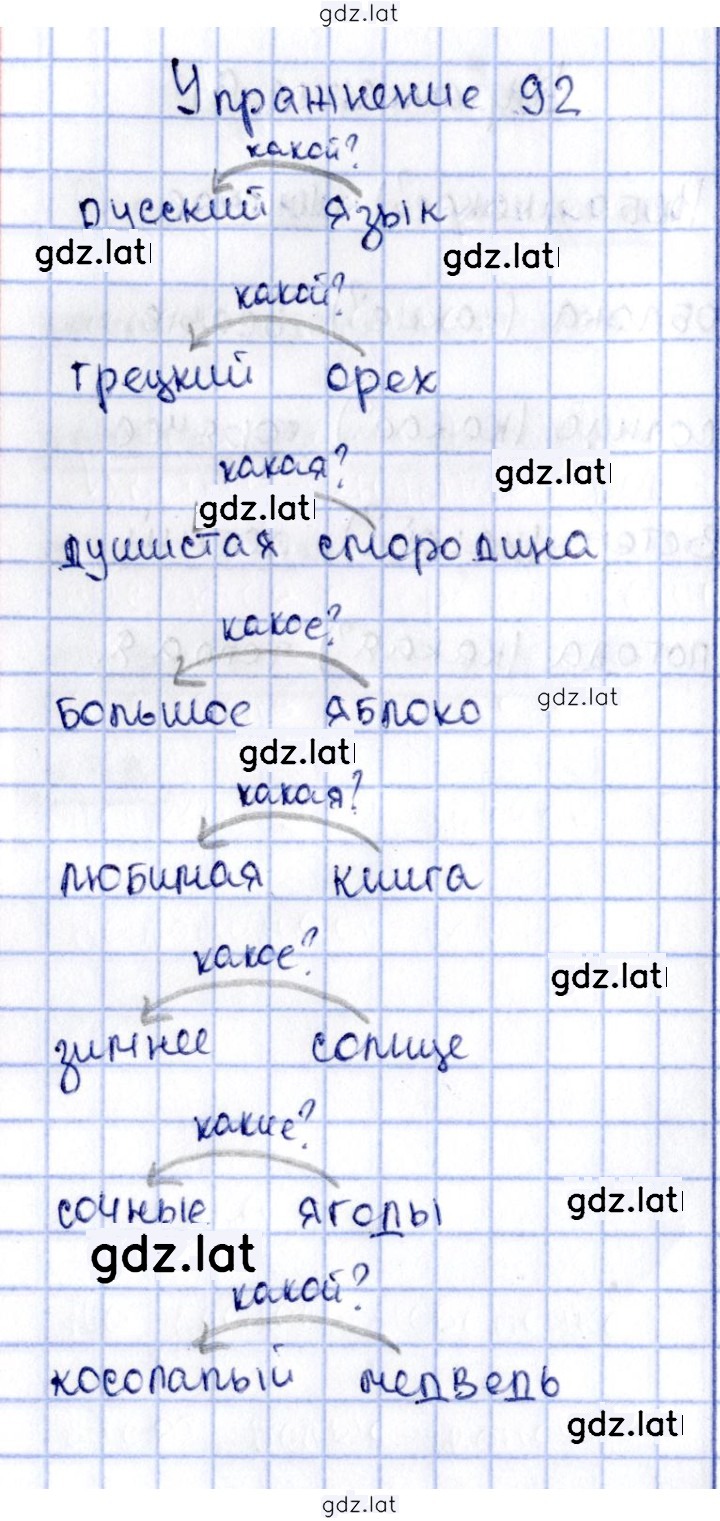 gdz.lat
Упражнение 92
какой?
русский язык
gdz.lat gdz.lat
какой?
грецкий орех
какая? gdz.lat
gdz.lat
душистая смородина
какое?
большое яблоко gdz.lat
gdz.lat
какая?
любимая книга
какое? gdz.lat
зимнее солнце
какие?
сочные ягоды gdz.lat
gdz.lat
какой?
косолапый медведь
gdz.lat
gdz.lat